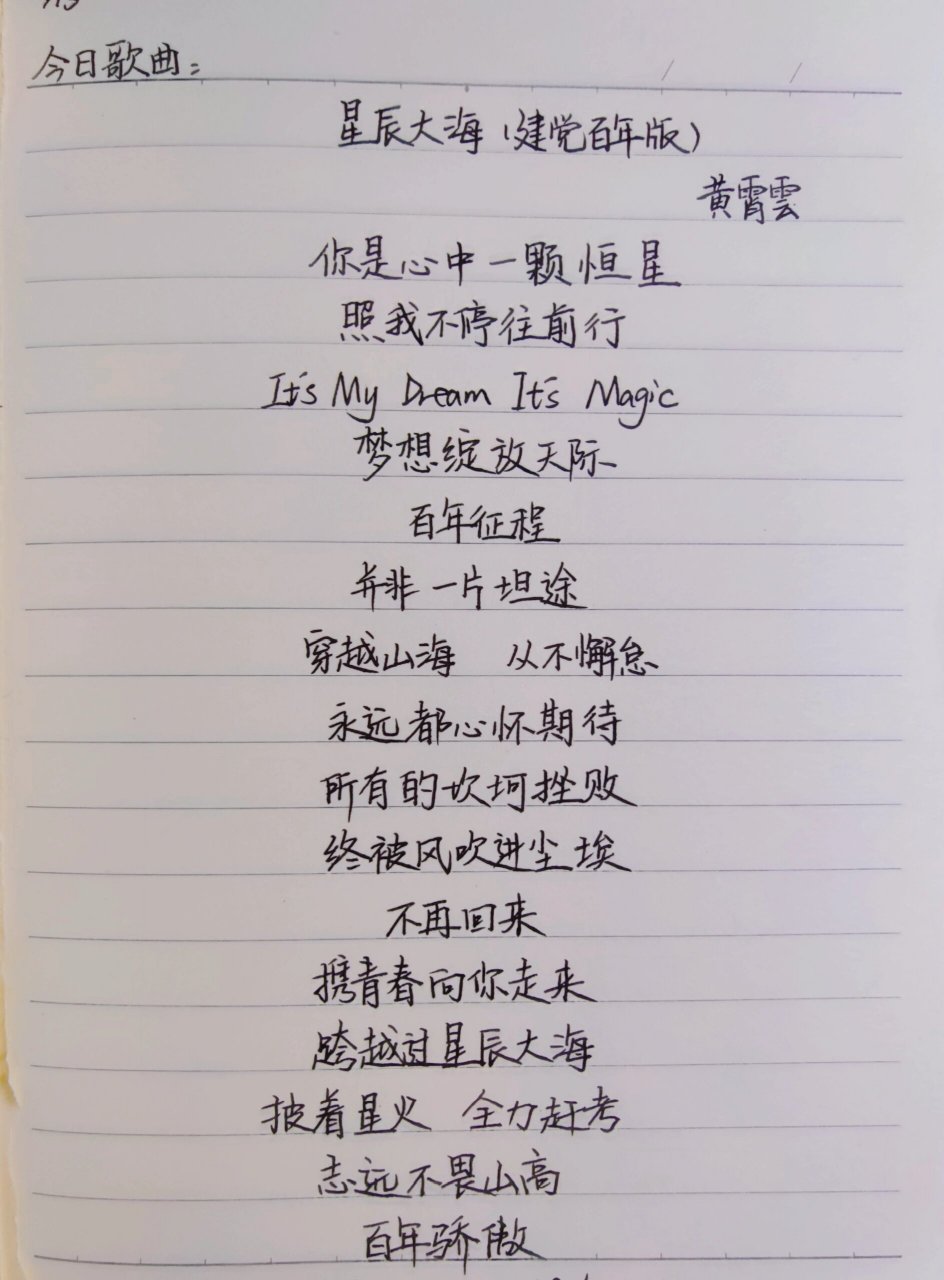 今日歌曲：
星辰大海（建党百年版）
黄霄雲
你是心中一颗恒星
照我不停往前行
It's My Dream It's Magic
梦想绽放天际
百年征程
并非一片坦途
穿越山海 从不懈怠
永远都心怀期待
所有的坎坷挫败
终被风吹进尘埃
不再回来
携青春向你走来
跨越过星辰大海
披着星火 全力赶考
志远不畏山高
百年骄傲